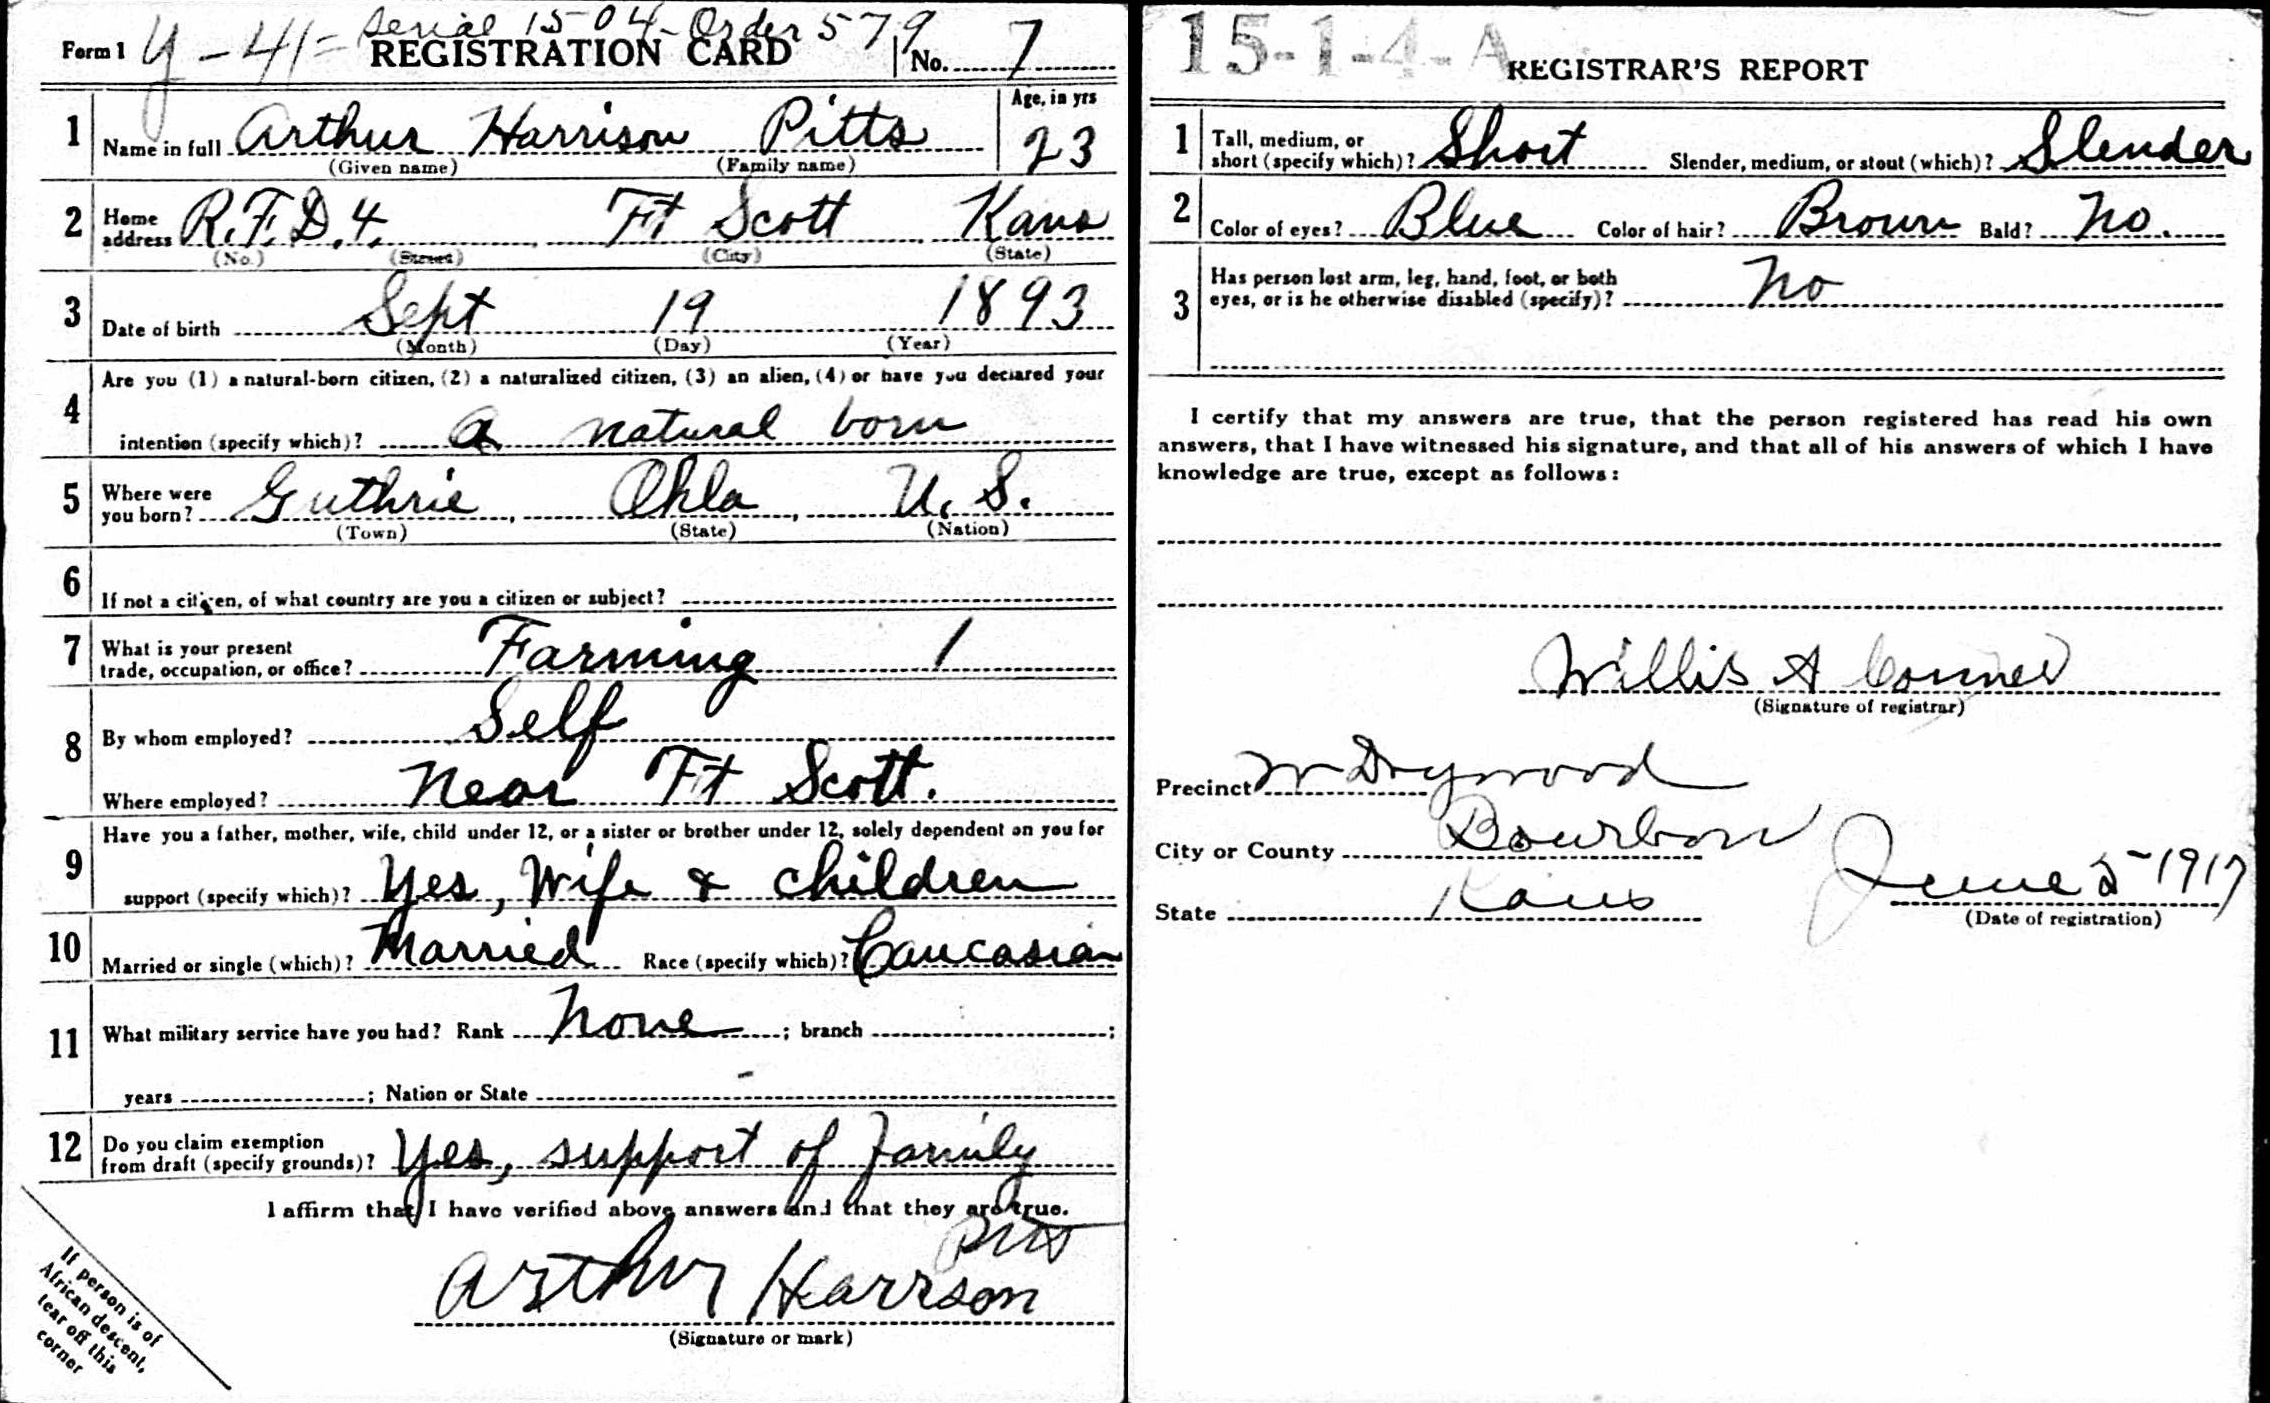 Serial 1504 - Order 579
Form 1 Y-41= REGISTRATION CARD No. 7
1 Name in full Arthur Harrison Pitts Age, in yrs 23
(Given name) (Family name)
2 Home address R.F.D. 4. Ft Scott Kans
(No.) (Street) (City) (State)
3 Date of birth Sept 19 1893
(Month) (Day) (Year)
4 Are you (1) a natural-born citizen, (2) a naturalized citizen, (3) an alien, (4) or have you declared your
intention (specify which)? a natural born
5 Where were you born? Guthrie, Okla, U.S.
(Town) (State) (Nation)
6 If not a citizen, of what country are you a citizen or subject?
7 What is your present trade, occupation, or office? Farming 1
8 By whom employed? Self
Where employed? Near Ft Scott.
9 Have you a father, mother, wife, child under 12, or a sister or brother under 12, solely dependent on you for
support (specify which)? Yes, Wife & children
10 Married or single (which)? Married Race (specify which)? Caucasian
11 What military service have you had? Rank None ; branch ;
years ; Nation or State
12 Do you claim exemption from draft (specify grounds)? Yes, support of family
I affirm that I have verified above answers and that they are true.
Pitts
Arthur Harrson
(Signature or mark)
If person is of
African descent,
tear off this
corner
15-1-4-A
REGISTRAR'S REPORT
1 Tall, medium, or short (specify which)? Short Slender, medium, or stout (which)? Slender
2 Color of eyes? Blue Color of hair? Brown Bald? No.
3 Has person lost arm, leg, hand, foot, or both
eyes, or is he otherwise disabled (specify)? No
I certify that my answers are true, that the person registered has read his own
answers, that I have witnessed his signature, and that all of his answers of which I have
knowledge are true, except as follows:
Willis A Conner
(Signature of registrar)
Precinct Drywood
City or County Bourbon
State Kans June 5-1917
(Date of registration)